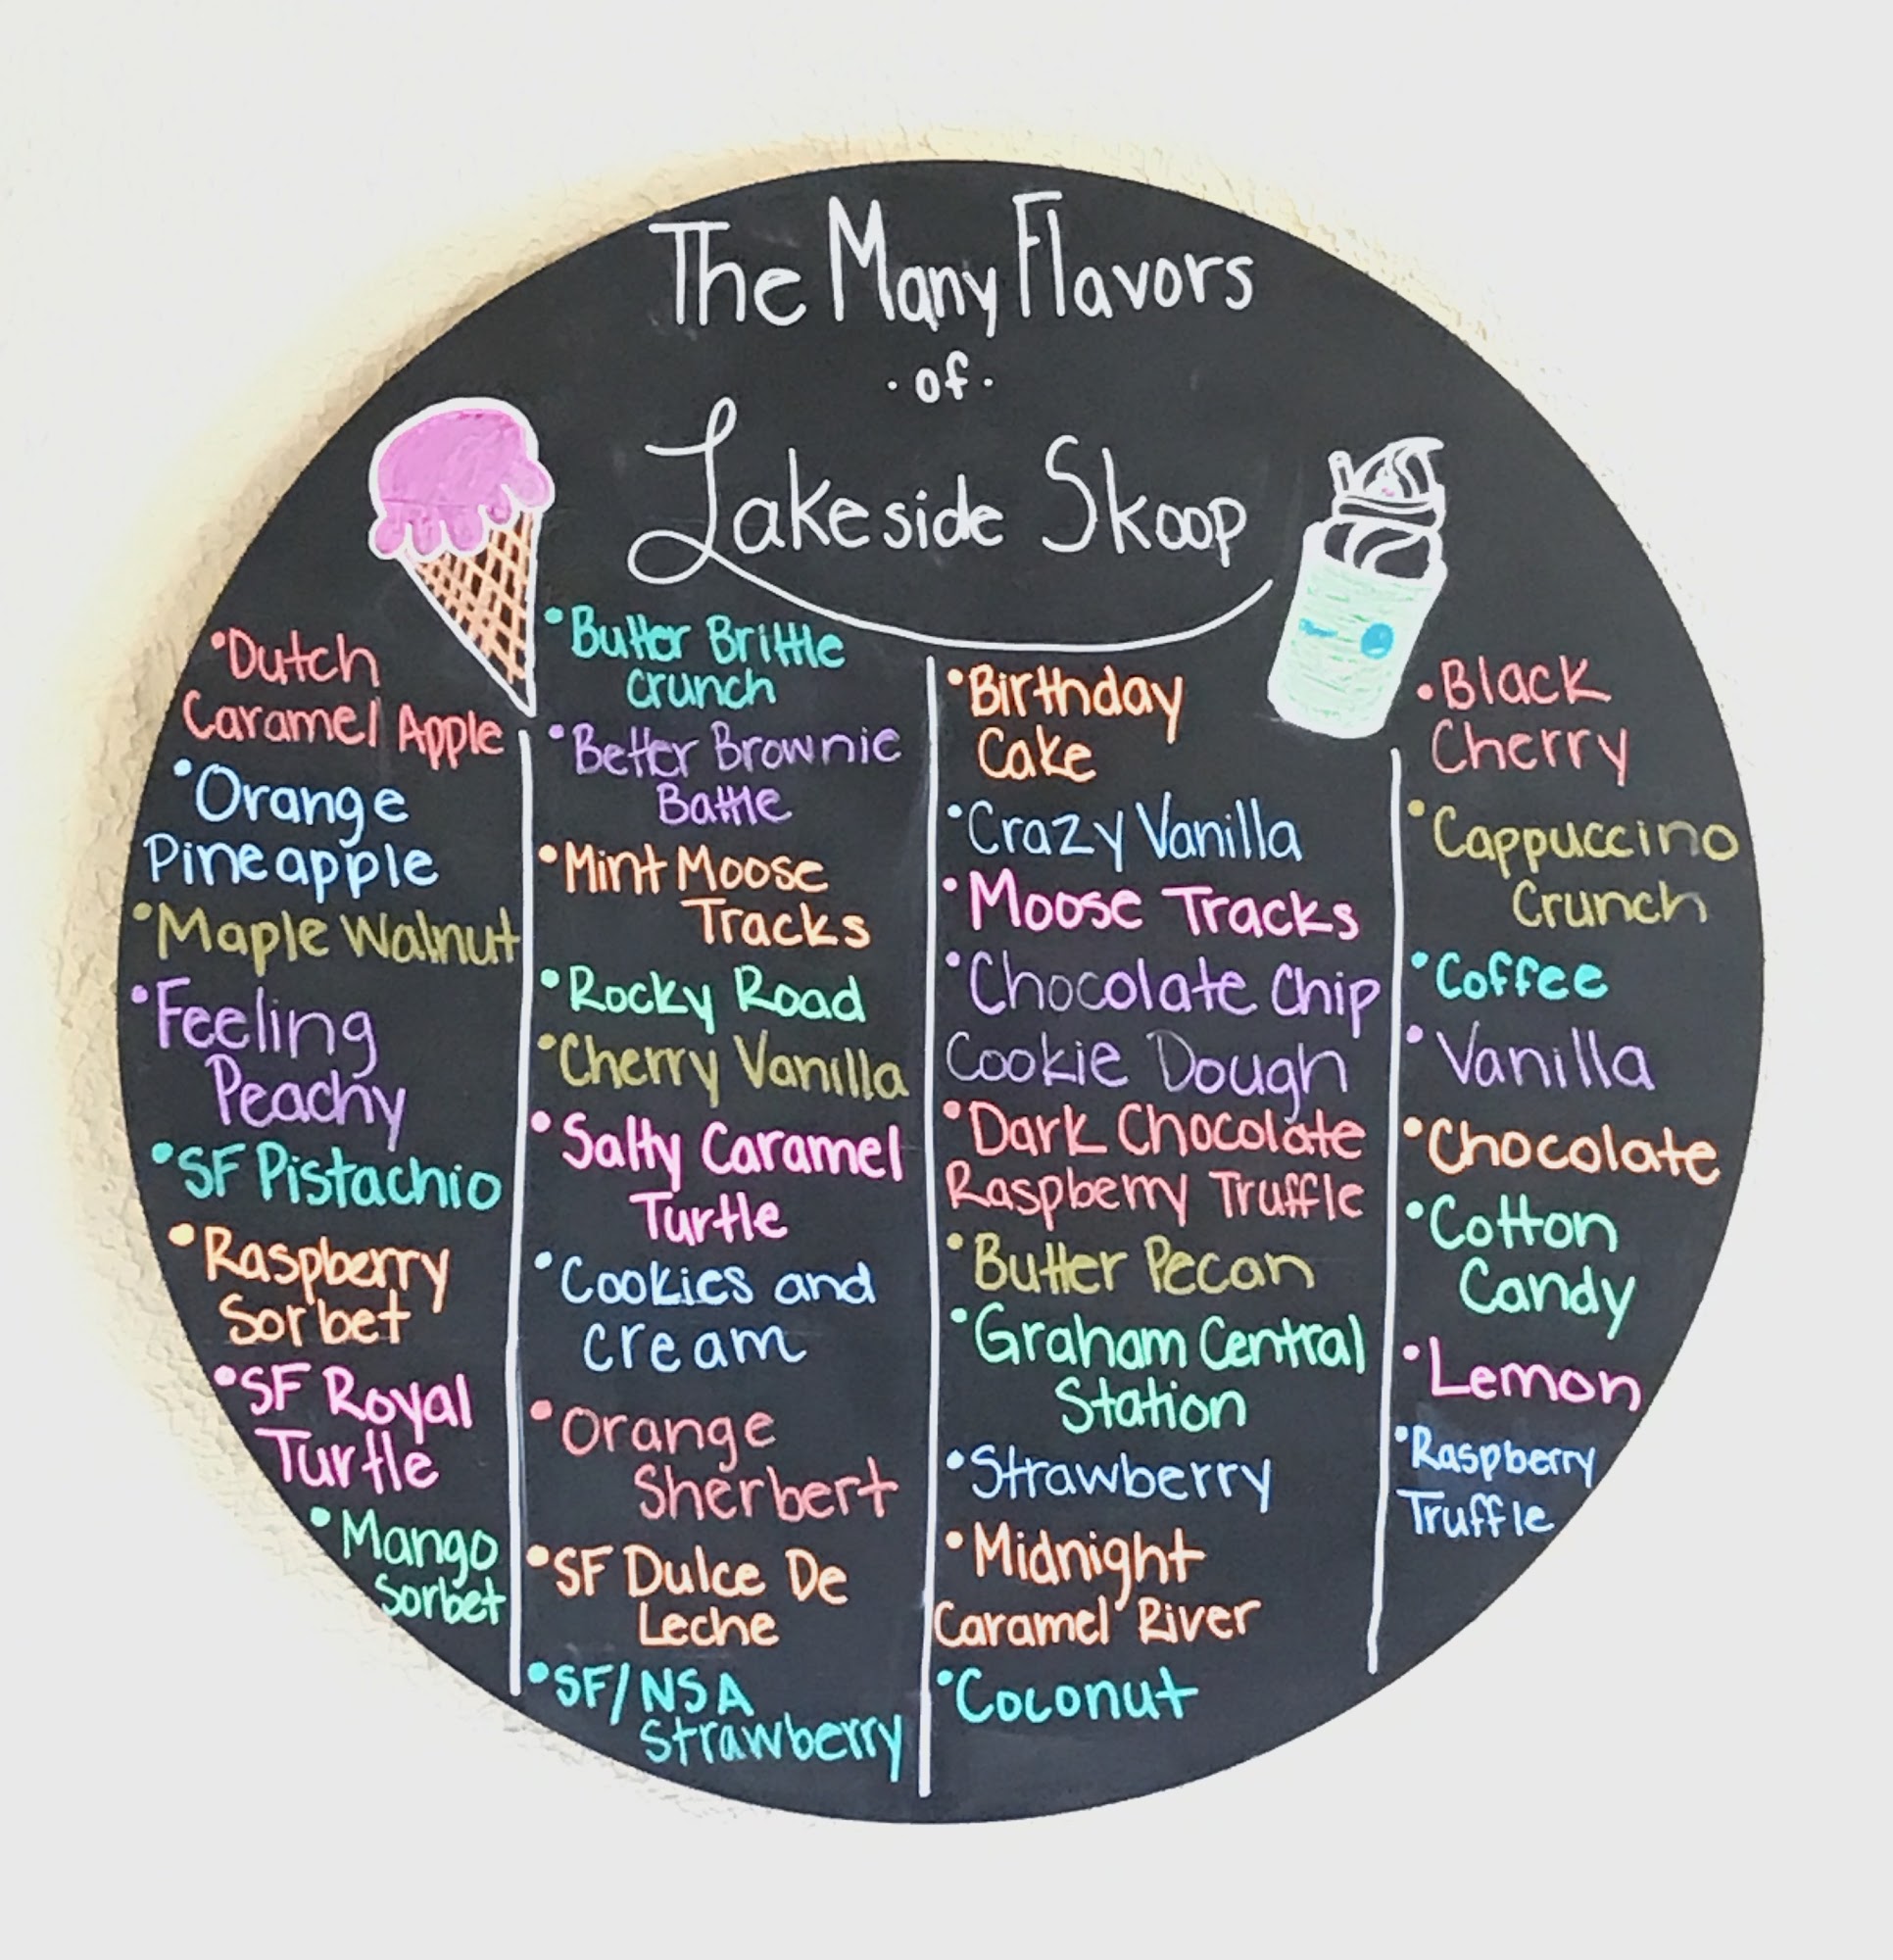 The Many Flavors
· of ·
Lakeside Skoop
•Dutch
Caramel Apple
•Orange
Pineapple
•Maple Walnut
•Feeling
Peachy
•SF Pistachio
•Raspberry
Sorbet
•SF Royal
Turtle
•Mango
Sorbet
•Butter Brittle
Crunch
•Better Brownie
Battle
•Mint Moose
Tracks
•Rocky Road
•Cherry Vanilla
•Salty Caramel
Turtle
•Cookies and
cream
•Orange
Sherbert
•SF Dulce De
Leche
•SF/NSA
Strawberry
•Birthday
Cake
•Crazy Vanilla
•Moose Tracks
•Chocolate Chip
Cookie Dough
•Dark Chocolate
Raspberry Truffle
•Butter Pecan
•Graham Central
Station
•Strawberry
•Midnight
Caramel River
•Coconut
•Black
Cherry
•Cappuccino
Crunch
•Coffee
•Vanilla
•Chocolate
•Cotton
Candy
•Lemon
•Raspberry
Truffle